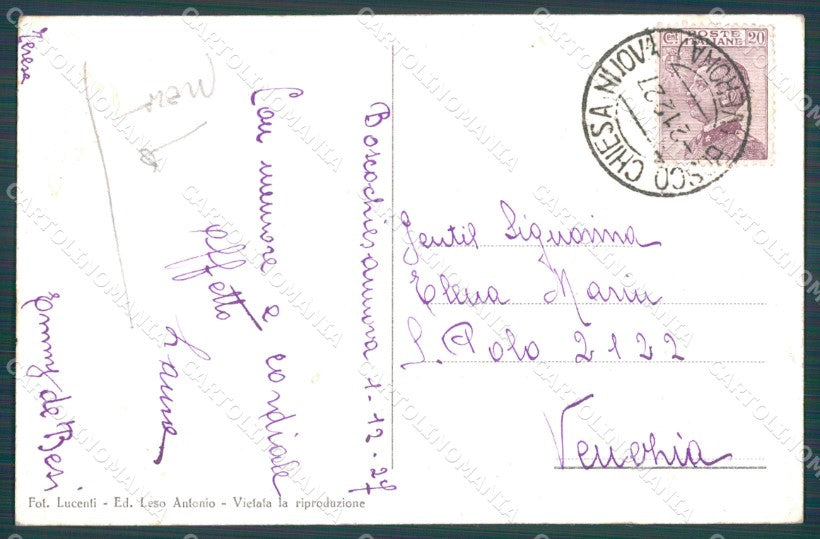 Boscochiesanuova 1-12-27
Con memore e cordiale
affetto
Laura
Emmy de Besi
Teresa
POSTE ITALIANE
Ct 20
BOSCO CHIESA NUOVA
(VERONA)
2.12.27
Gentil Signorina
Elena Marin
S. Polo 2122
Venezia
Fot. Lucenti - Ed. Leso Antonio - Vietata la riproduzione
CARTOLINOMANIA